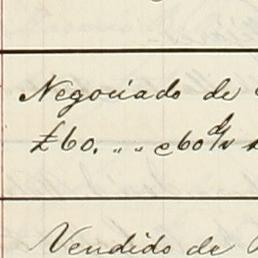 Negociado de
£60. „ „ @ 60 d/v
Vendido de